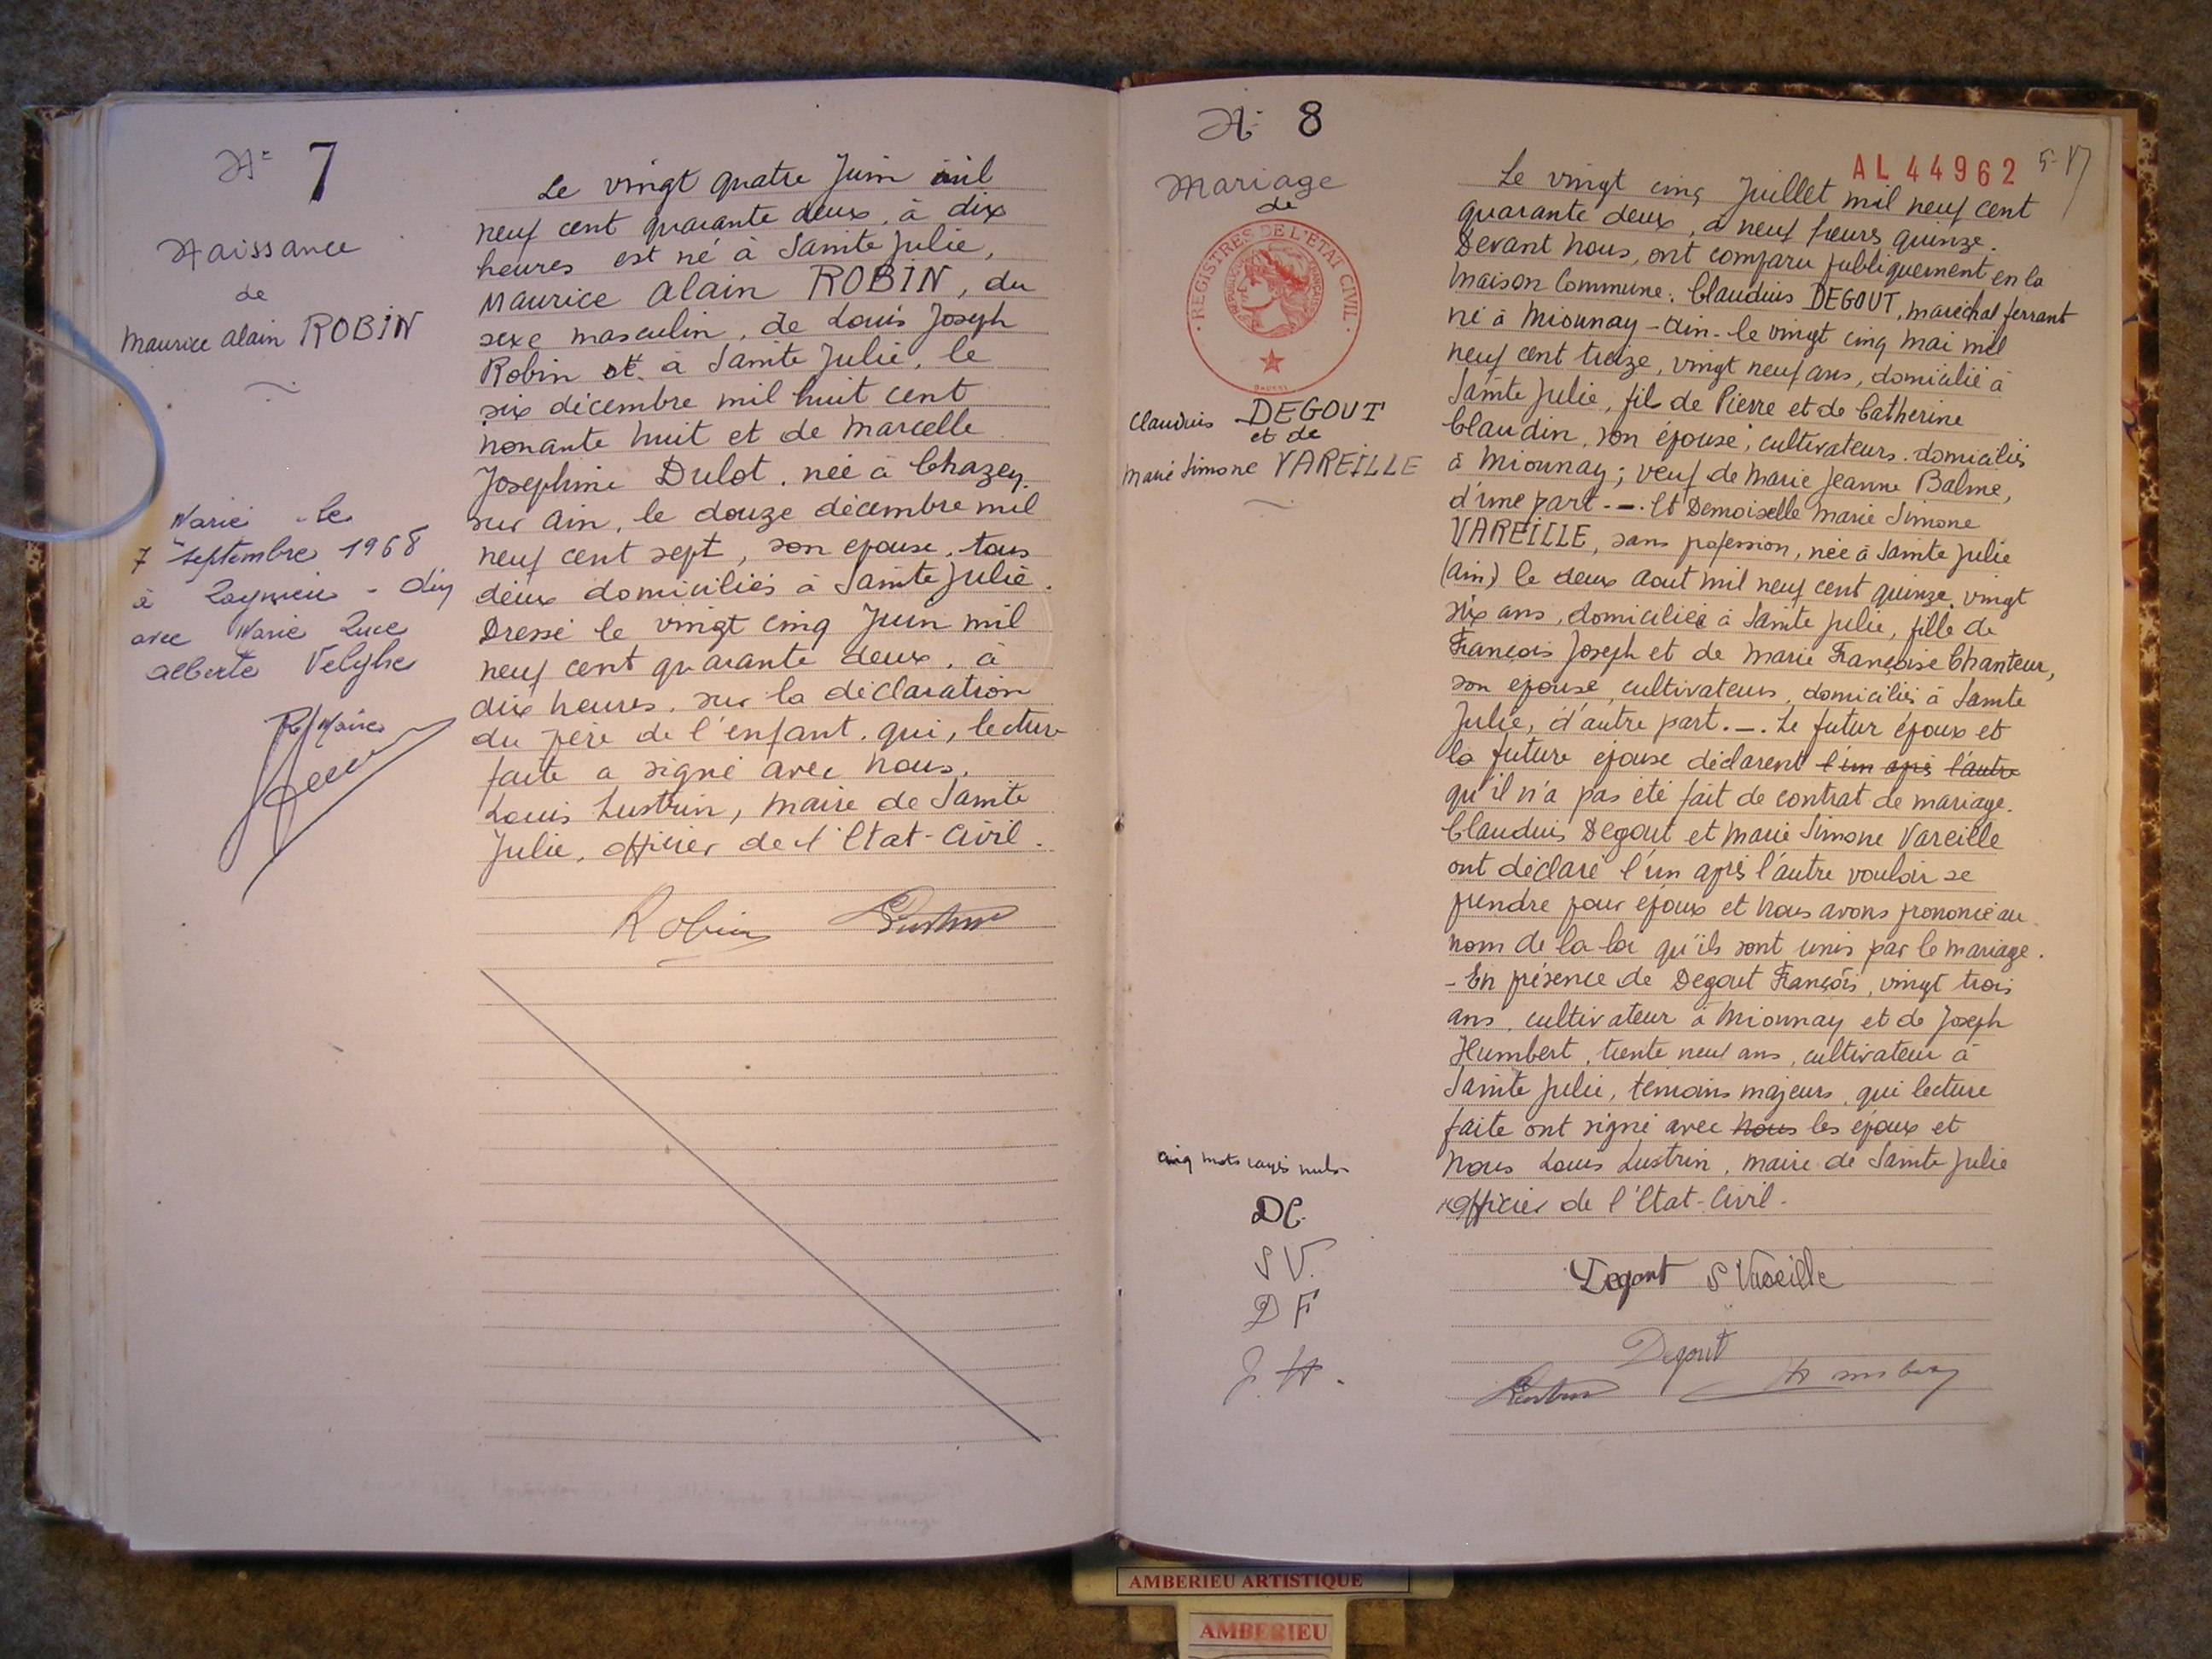 N° 7
Naissance
de
Maurice Alain ROBIN
Marié le
7 Septembre 1968
à Lagnieu - Ain
avec Marie Luce
Alberte
Le Maire
Le vingt quatre Juin mil
neuf cent quarante deux, à dix
heures est né à Sainte Julie,
Maurice Alain ROBIN, du
sexe masculin, de Louis Joseph
Robin né à Sainte Julie, le
six décembre mil huit cent
nonante huit et de Marcelle
Joséphine Dulot, née à Chazey
sur Ain, le douze décembre mil
neuf cent sept, son épouse, tous
deux domiciliés à Sainte Julie.
Dressé le vingt cinq Juin mil
neuf cent quarante deux, à
dix heures, sur la déclaration
du père de l'enfant, qui, lecture
faite a signé avec nous,
Louis Lustrin, maire de Sainte
Julie, officier de l'Etat-Civil.
Robin Lustrin
N° 8
Mariage
de
REGISTRES DE L'ETAT CIVIL
Claudius DEGOUT
et de
Marie Simone VAREILLE
cinq mots rayés nuls
DC
S V.
D F
J. H.
AL 44962
Le vingt cinq Juillet mil neuf cent
quarante deux, à neuf heures quinze.
Devant nous, ont comparu publiquement en la
maison Commune: Claudius DEGOUT, maréchal ferrant
né à Mionnay - Ain - le vingt cinq mai mil
neuf cent treize, vingt neuf ans, domicilié à
Sainte Julie, fils de Pierre et de Catherine
Claudin, son épouse, cultivateurs domiciliés
à Mionnay; veuf de Marie Jeanne Balme,
d'une part. -. Et Demoiselle Marie Simone
VAREILLE, sans profession, née à Sainte Julie
(Ain) le deux Aout mil neuf cent quinze, vingt
six ans, domiciliée à Sainte Julie, fille de
François Joseph et de Marie Françoise Chanteur,
son épouse, cultivateurs, domiciliés à Sainte
Julie, d'autre part. -. Le futur époux et
la future épouse déclarent l'un après l'autre
qu'il n'a pas été fait de contrat de mariage.
Claudius Degout et Marie Simone Vareille
ont déclaré l'un après l'autre vouloir se
prendre pour époux et nous avons prononcé au
nom de la loi qu'ils sont unis par le mariage.
- En présence de Degout François, vingt trois
ans, cultivateur à Mionnay et de Joseph
Humbert, trente neuf ans, cultivateur à
Sainte Julie, témoins majeurs, qui lecture
faite ont signé avec nous les époux et
Nous Louis Lustrin, maire de Sainte Julie
Officier de l'Etat-Civil.
Degout S Vareille
Degout
Lustrin Humbert
AMBERIEU ARTISTIQUE
AMBERIEU